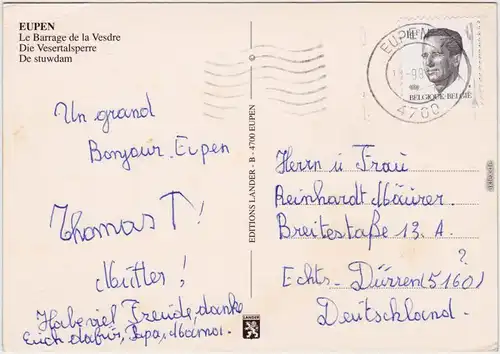 EUPEN
Le Barrage de la Vesdre
Die Vesertalsperre
De stuwdam
Un grand
Bonjour. Eupen
Thomas T!
Mutter!
Habe viel Freude, danke
Euch dafür, Papa, Mama.
EDITIONS LANDER - B - 4700 EUPEN
LANDER
EUPEN
4700
BELGIQUE-BELGIË
Herrn u Frau
Reinhardt Mäurer.
Breitestaße 13. A.
?
Echts- Dürren (5160)
Deutschland.